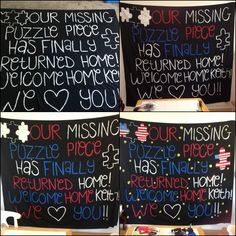 OUR MISSING
PUZZLE PIECE
HAS FINALLY
RETURNED HOME!
WELCOME HOME KeitH!
We ♡ YOU!!
OUR MISSING
PUZZLE PIECE
HAS FINALLY
RETURNED HOME!
WELCOME HOME KeitH!
We ♡ YOU!!
OUR MISSING
PUZZLE PIECE
HAS FINALLY
RETURNED HOME!
WELCOME HOME KeitH!
We ♡ YOU!!
OUR MISSING
PUZZLE PIECE
HAS FINALLY
RETURNED HOME!
WELCOME HOME KeitH!
We ♡ YOU!!